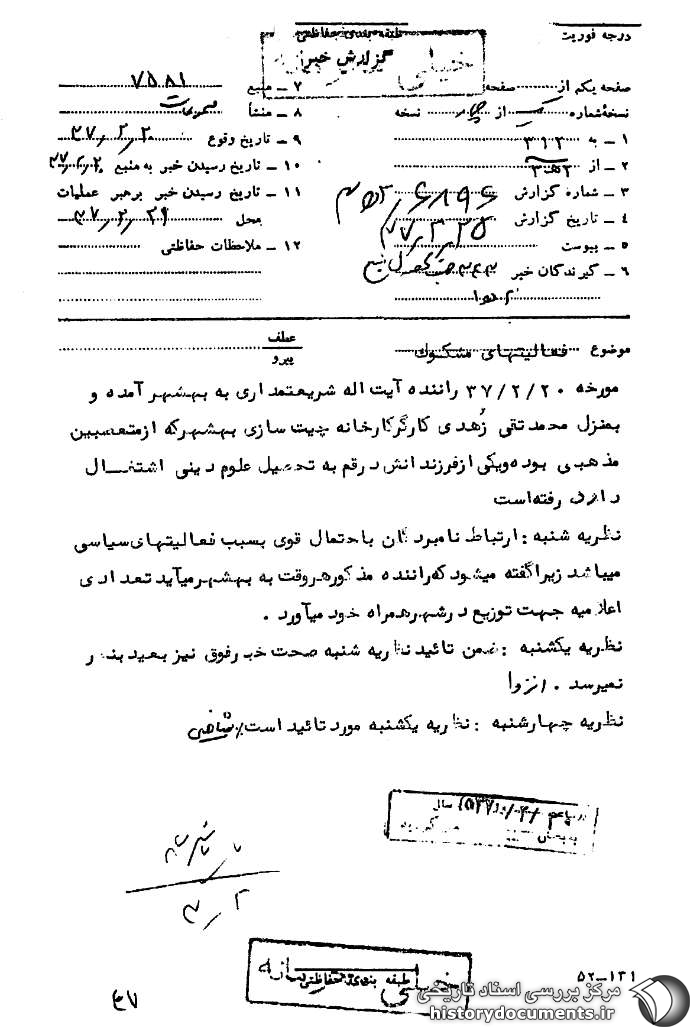 درجه فوریت
طبقه بندی حفاظتی
خیلی محرمانه
گزارش خبر
صفحه یکم از صفحه
نسخه شماره یک از چهار نسخه
۱ – به ۳۱۲
۲ – از
۳ – شماره گزارش
۴ – تاریخ گزارش
۵ – پیوست
۶ – گیرندگان خبر
۷ – منبع ۷۵۸۱
۸ – منشأ
۹ – تاریخ وقوع ۳۷/۲/۲۰
۱۰ – تاریخ رسیدن خبر به منبع ۳۷/۲/۲۰
۱۱ – تاریخ رسیدن خبر برهبر عملیات
محل ۳۷/۲/۲۱
۱۲ – ملاحظات حفاظتی
موضوع فعالیتهای مشکوک
عطف
پیرو
مورخه ۳۷/۲/۲۰ راننده آیت اله شریعتمداری به بهشهر آمده و
بمنزل محمدتقی زُهدی کارگرکارخانه چیت سازی بهشهرکه ازمتعصبین
مذهبی بوده ویکی ازفرزندانش درقم به تحصیل علوم دینی اشتغال
دارد رفته است
نظریه شنبه : ارتباط نامبردگان باحتمال قوی بسبب فعالیتهای سیاسی
میباشد زیراگفته میشود که راننده مذکورهروقت به بهشهرمیآید تعدادی
اعلامیه جهت توزیع درشهرهمراه خود میآورد .
نظریه یکشنبه : ضمن تائید نظریه شنبه صحت خبرفوق نیز بعید بنظر
نمیرسد . انزوا
نظریه چهارشنبه : نظریه یکشنبه مورد تائید است.
سال
طبقه بندی حفاظتی
خیلی محرمانه
۵۲–۱۳۱
مرکز بررسی اسناد تاریخی
historydocuments.ir